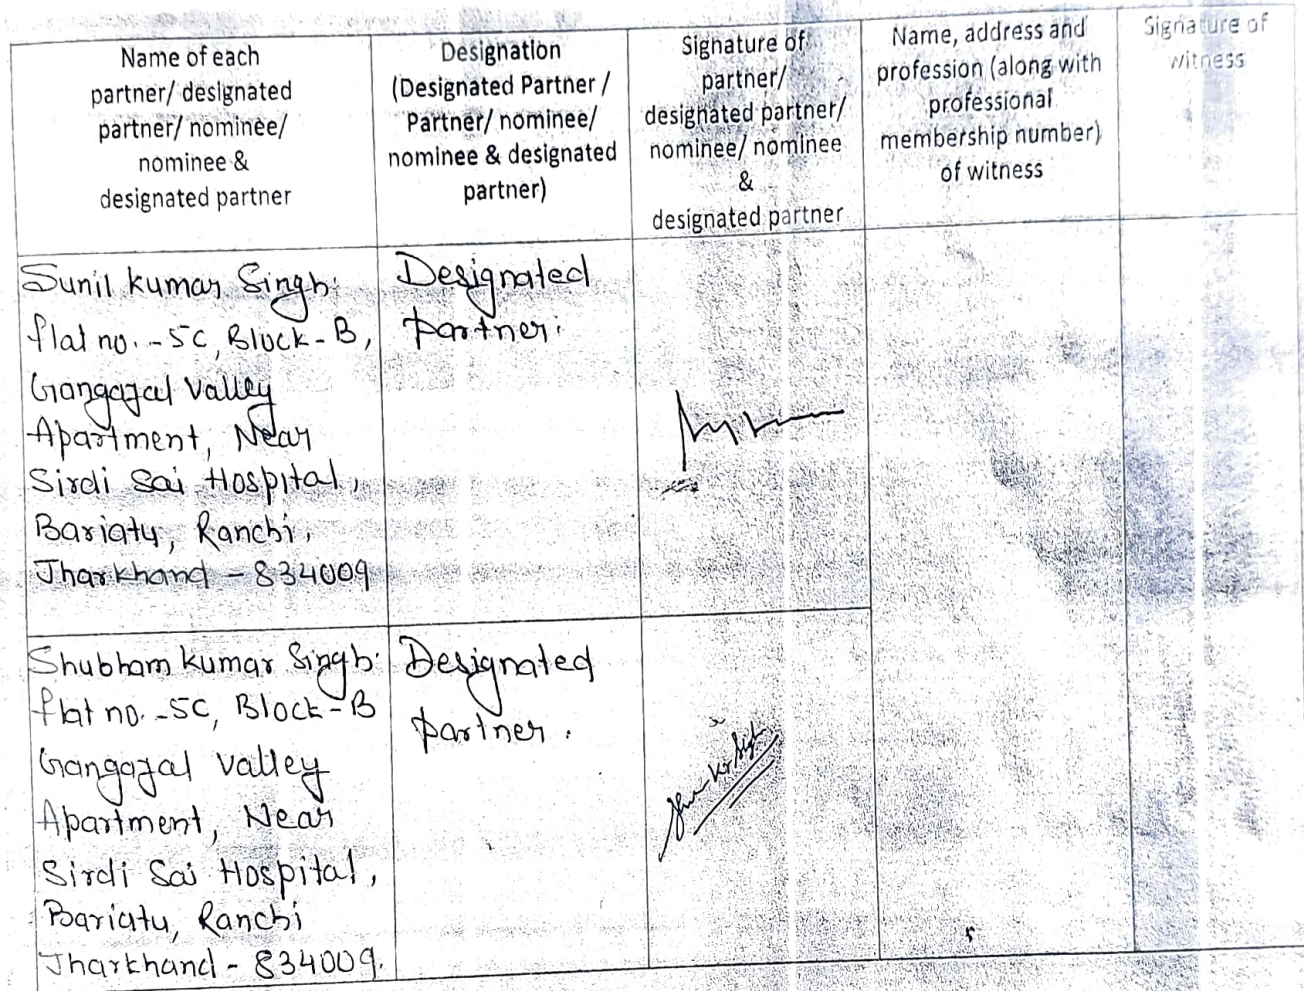 Name of each
partner/ designated
partner/ nominee/
nominee &
designated partner
Designation
(Designated Partner /
Partner/ nominee/
nominee & designated
partner)
Signature of
partner/
designated partner/
nominee/ nominee
&
designated partner
Name, address and
profession (along with
professional
membership number)
of witness
Signature of
witness
Sunil kumar Singh.
flat no. - 5C, Block - B,
Gangajal Valley
Apartment, Near
Sirdi Sai Hospital,
Bariatu, Ranchi,
Jharkhand - 834009
Designated
partner.
Shubham kumar Singh.
flat no. - 5C, Block - B
Gangajal valley
Apartment, Near
Sirdi Sai Hospital,
Bariatu, Ranchi
Jharkhand - 834009.
Designated
partner.
Kr Singh